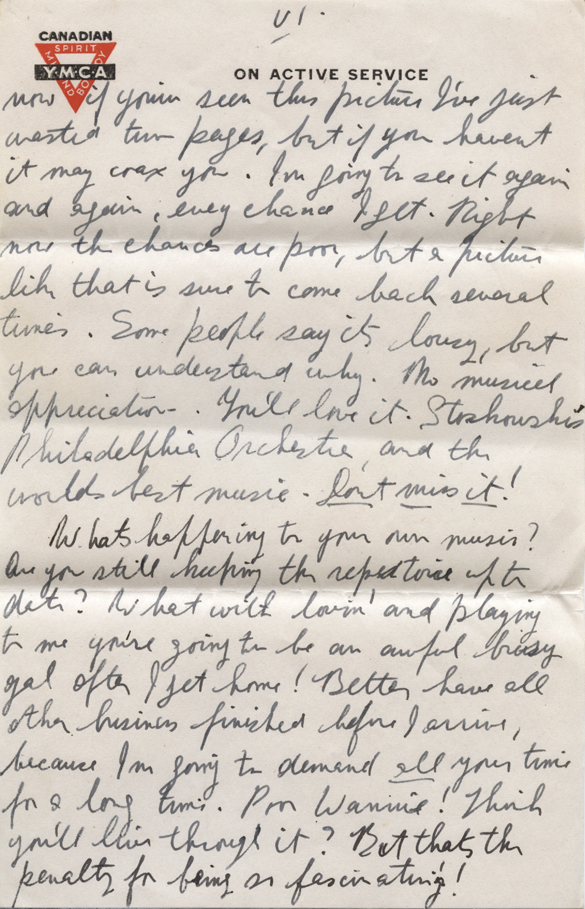 VI.
CANADIAN
SPIRIT
MIND BODY
Y·M·C·A
ON ACTIVE SERVICE
now if you've seen this picture I've just
wasted two pages, but if you haven't
it may coax you. I'm going to see it again
and again, every chance I get. Right
now the chances are poor, but a picture
like that is sure to come back several
times. Some people say its lousy, but
you can understand why. No musical
appreciation. You'll love it. Stoskowski's
Philadelphia Orchestra, and the
worlds best music. Don't miss it!
Whats happening to your own music?
Are you still keeping the repertoire up to
date? What with lovin' and playing
to me you're going to be an awful busy
gal after I get home! Better have all
other business finished before I arrive,
because I'm going to demand all your time
for a long time. Poor Wannie! Think
you'll live through it? But thats the
penalty for being so fascinating!